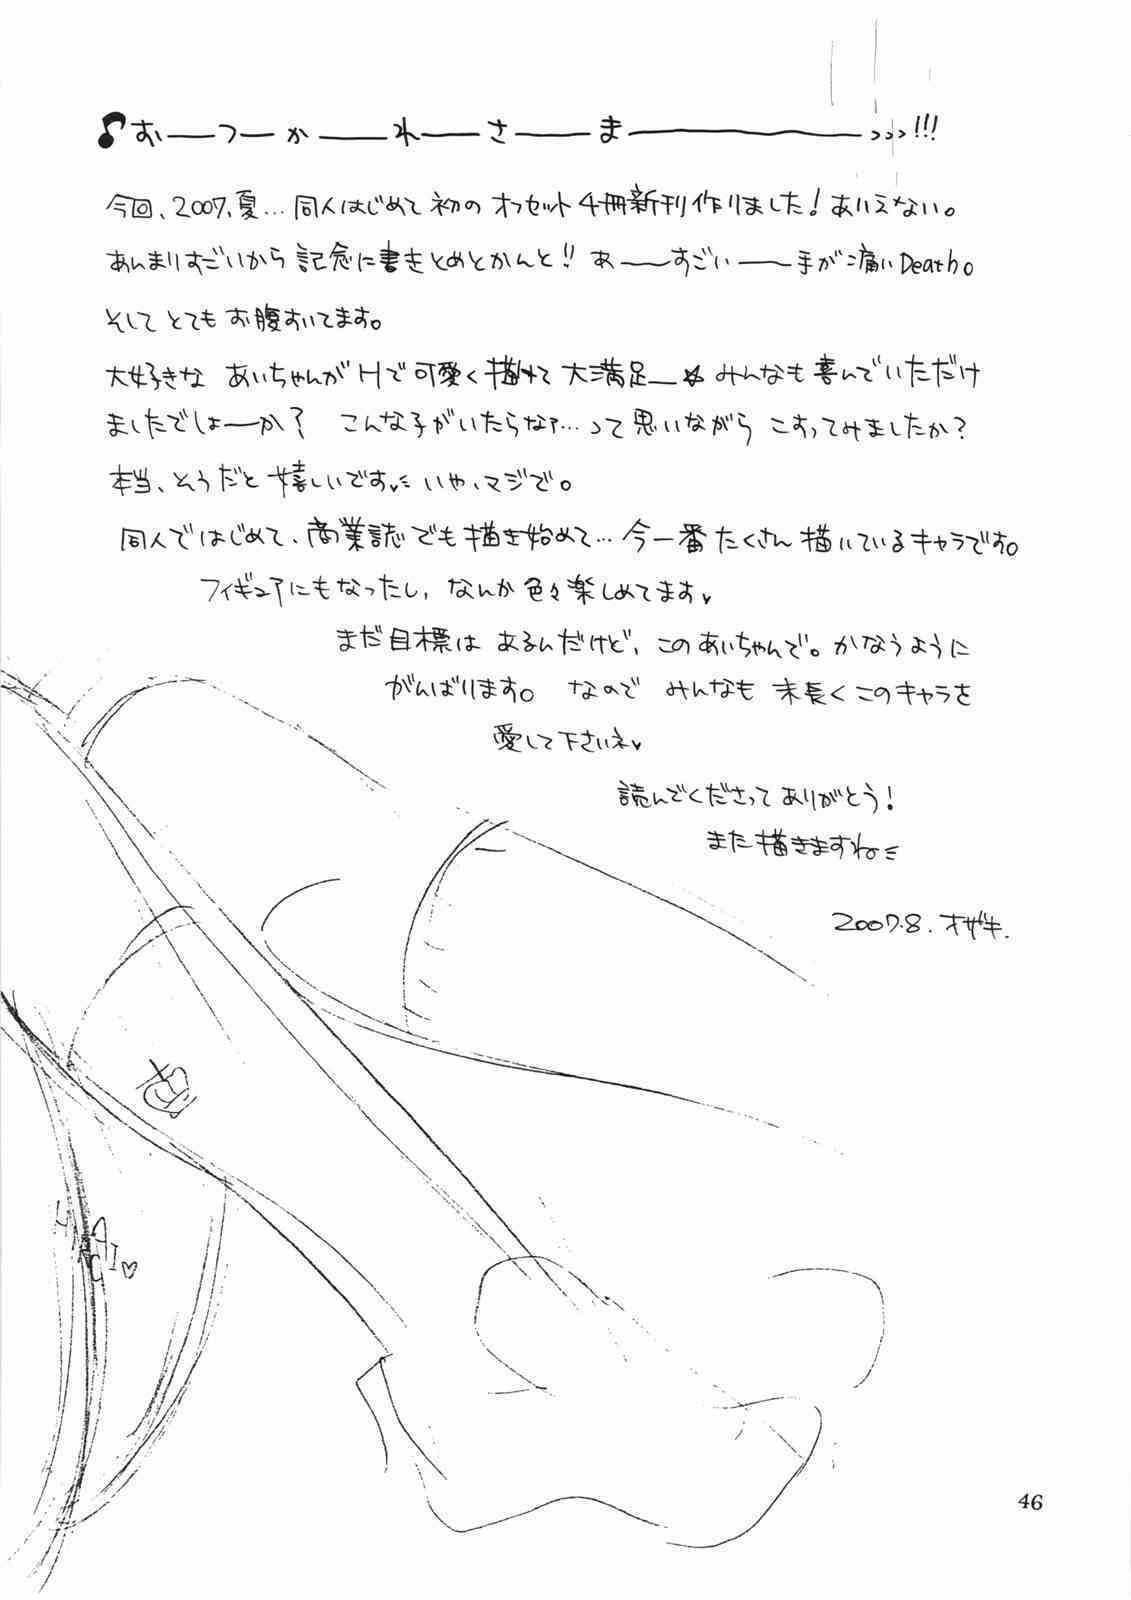 ♪おーつーかーれーさーまー>>>!!!
今回、2007、夏…同人はじめて初のオフセット4冊新刊作りました!ありえない。
あんまりすごいから記念に書きとめとかんと!!あーーすごいーー手が痛いDeath。
そしてとてもお腹すいてます。
大好きなあいちゃんがHで可愛く描けて大満足ー☆みんなも喜んでいただけ
ましたでしょーか?こんな子がいたらなァ…って思いながらこすってみましたか?
本当、そうだと嬉しいです♥いや、マジで。
同人ではじめて、商業誌でも描き始めて…今一番たくさん描いているキャラです。
フィギュアにもなったし、なんか色々楽しめてます♥
まだ目標はあるんだけど、このあいちゃんで。かなうように
がんばります。なのでみんなも末長くこのキャラを
愛して下さいネ♥
読んでくださってありがとう!
また描きますね
2007.8.オザキ.
46